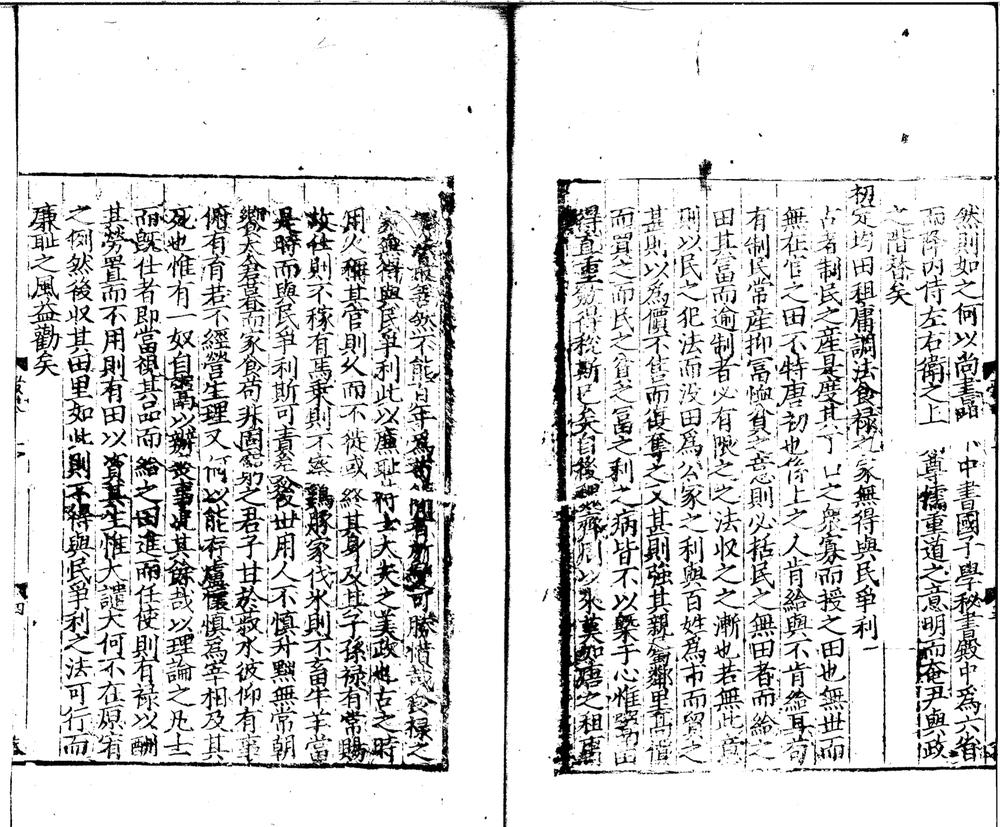 然則如之何以尚書 中書國子學秘書殿中為六省
而降內侍左右衛之上 尊儒重道之意明而奄尹與政
之階替矣
初定均田租庸調法食祿之家無得與民爭利
古者制民之產是度其丁口之衆寡而授之田也無世而
無在官之田不特唐初也係上之人肯給與不肯給耳苟
有制民常產抑富恤貧之意則必括民之無田者而給之
田其富而逾制者必有限之之法收之之漸也若無此意
則以民之犯法而没田為公家之利與百姓為市而貿之
甚則以為價不售而復奪之又甚則強其親鄰里高價
而買之而民之貧之富之利之病皆不以槩乎心惟富田
得直重 得稅斯已矣自後 莫如唐之租庸
然不能百年為 可勝惜哉食祿之
家無得與民爭利此以廉恥待士大夫之美政也古之時
用人稱其官則久而不徙或終其身及其子孫祿有常賜
故仕則不稼有馬乘則不察雞豚家伐氷則不畜牛羊當
是時而與民爭利斯可責矣後世用人不慎升黜無常朝
饗大倉暮而家食苟非固窮之君子甘於菽水彼仰有事
俯有育若不經營生理又何以能存盧懷慎為宰相及其
死也惟有一奴自鬻以辦喪事况其餘哉以理論之凡士
而既仕者即當視其品而給之田進而任使則有祿以酬
其勞置而不用則有田以資其生惟大譴大何不在原宥
之例然後收其田里如此則不得與民爭利之法可行而
廉恥之風益勸矣